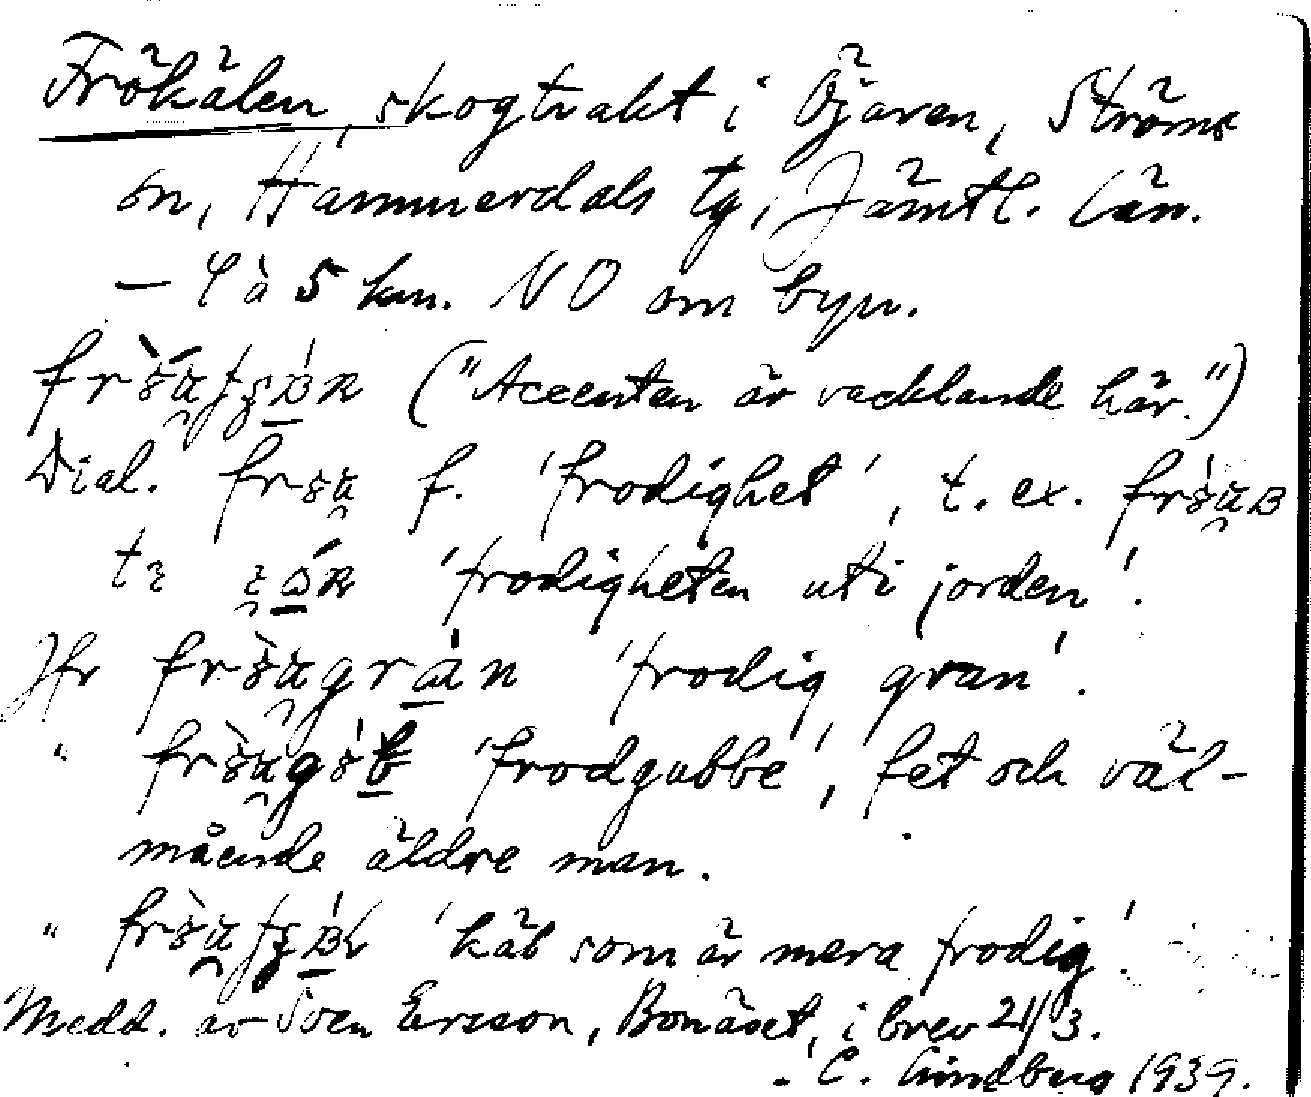 Frökälen, skogtrakt i Öjaren, Ströms
sn, Hammerdals tg, Jämtl. län.
— 4 à 5 km. NO om byn.
("Accenten är vacklande här.")
Dial. f. 'frodighet', t. ex.
'frodigheten uti jorden'.
Jfr 'frodig gran'.
" 'frodgubbe', fet och väl-
mående äldre man.
" 'käl som är mera frodig'.
Medd. av Sven Ersson, Bonäset, i brev 21/3.
C. Lindberg 1939.